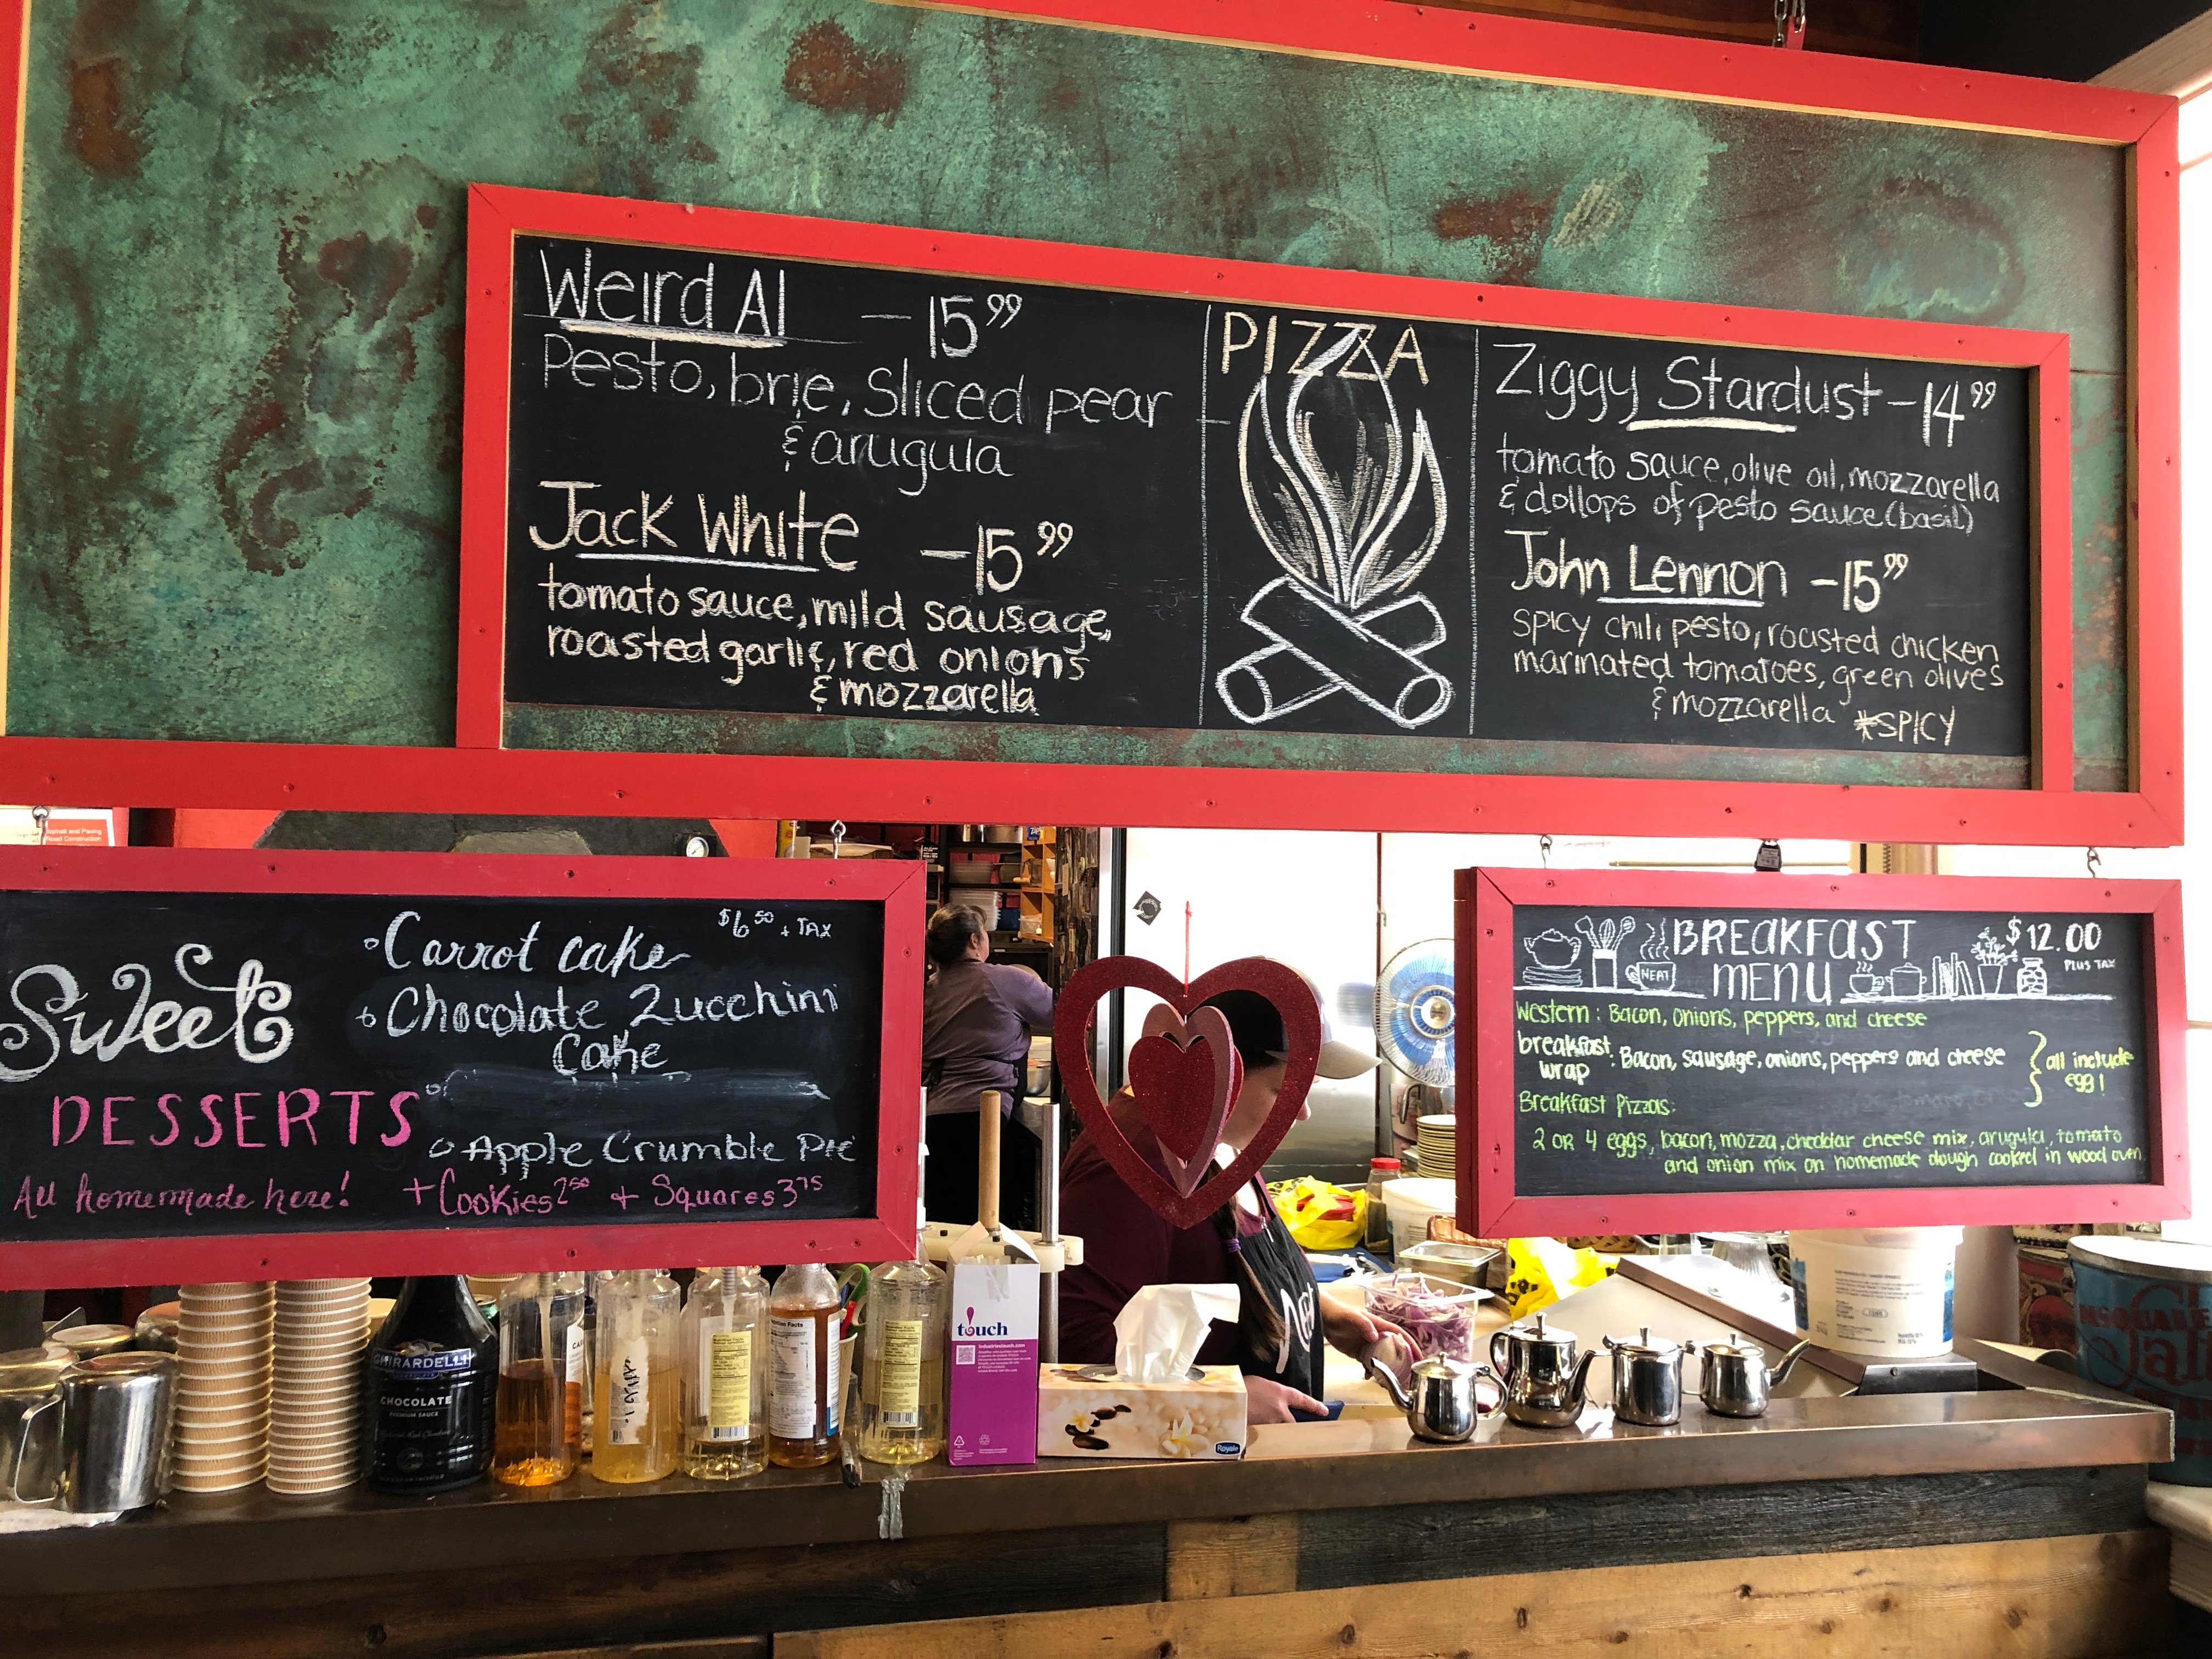 Weird Al - 15 99
Pesto, brie, Sliced pear
& arugula
Jack White - 15 99
tomato sauce, mild sausage,
roasted garlic, red onions
& mozzarella
PIZZA
Ziggy Stardust - 14 99
tomato sauce, olive oil, mozzarella
& dollops of pesto sauce (basil)
John Lennon - 15 99
SPICY chili pesto, roasted chicken
marinated tomatoes, green olives
& mozzarella *SPICY
Asphalt and Paving
Road Construction
Sweet
DESSERTS
All homemade here!
Carrot cake $6 50 + TAX
Chocolate Zucchini
Cake
Apple Crumble Pie
+ Cookies 2 50 + Squares 3 75
BREAKFAST
MENU
NEAT
$12.00
PLUS TAX
Western: Bacon, onions, peppers, and cheese
breakfast
wrap : Bacon, sausage, onions, peppers and cheese
all include
egg!
Breakfast Pizzas:
2 OR 4 eggs, bacon, mozza, cheddar cheese mix, arugula, tomato
and onion mix on homemade dough cooked in wood oven
GHIRARDELLI
CHOCOLATE
PREMIUM SAUCE
touch
Royale